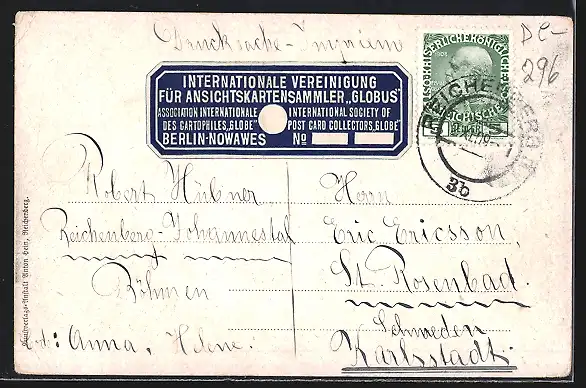 Drucksache - Imprieme
De-
296
INTERNATIONALE VEREINIGUNG
FÜR ANSICHTSKARTENSAMMLER „GLOBUS"
ASSOCIATION INTERNATIONALE
DES CARTOPHILES „GLOBE"
INTERNATIONAL SOCIETY OF
POST CARD COLLECTORS „GLOBE"
BERLIN-NOWAWES No
REICHENBERG
3b
Robert Hübner
Reichenberg-Johannestal
Böhmen
Anna, Helene.
Herrn
Eric Ericsson,
St. Rosenbad.
Schweden
Karlsstadt.
Kunstverlags-Anstalt Anton Hein, Reichenberg.